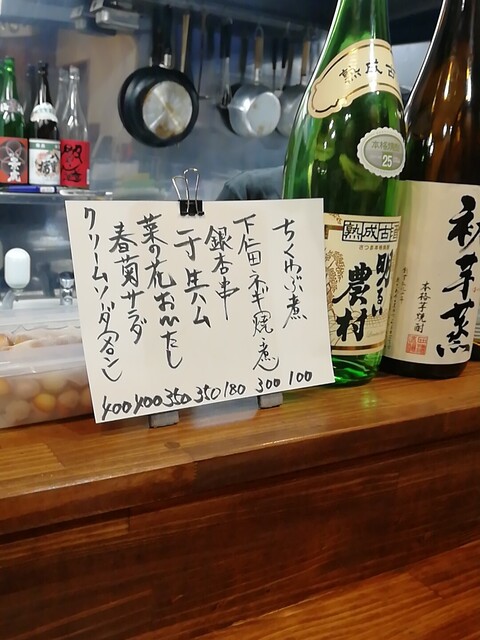 ちくわぶ煮 100
下仁田ネギ(焼・煮) 300
銀杏串 180
生ハム 350
菜の花おひたし 350
春菊サラダ 400
クリームソーダ(メロン) 400
熟成古
本格焼酎
25
熟成古酒
さつま本格焼酎
明るい
農村
初芋蒸
本格芋焼酎